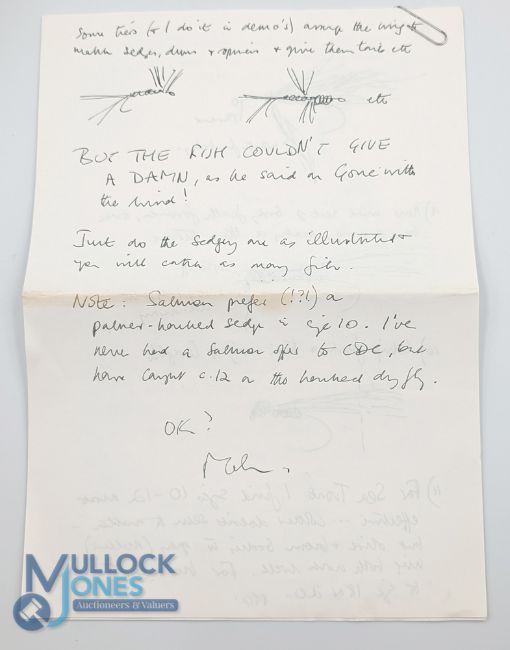 Some tiers (& I do it in demo's) arrange the wings to
match sedges, duns & spinners & give them tails etc
etc
BUT THE FISH COULDN'T GIVE
A DAMN, as he said in Gone with
the Wind!
Just do the sedgey one as illustrated &
you will catch as many fish.
Note: Salmon prefer (!?!) a
palmer-hackled sedge in size 10. I've
never had a Salmon offer to CDC, but
have caught c.12 on the hackled dry fly.
OK?
MULLOCK
JONES
Auctioneers & Valuers